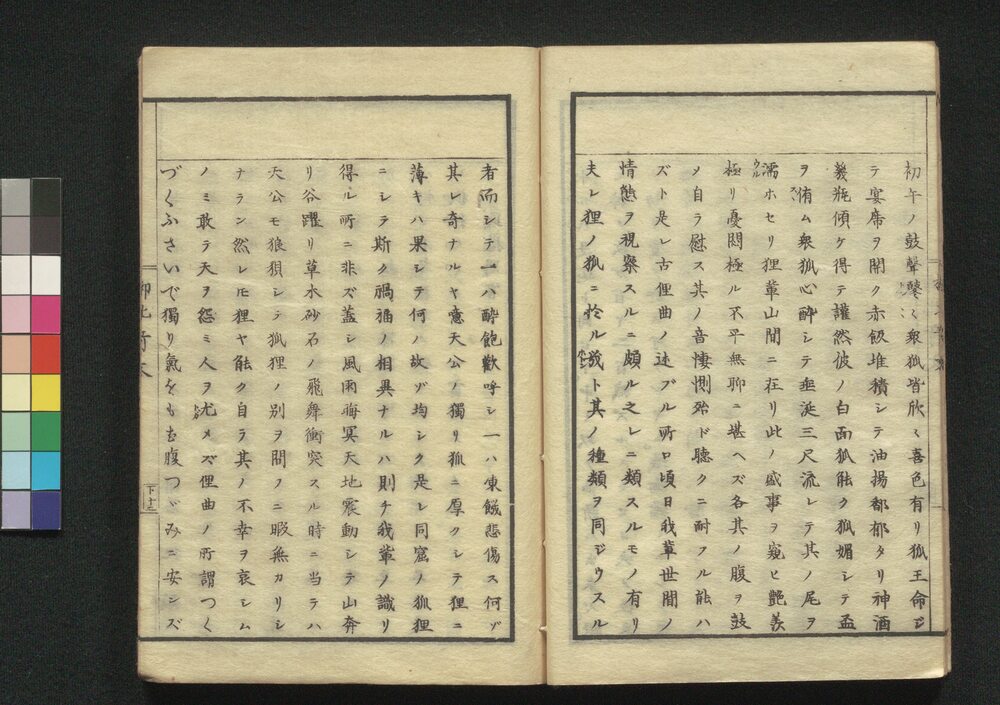 初午ノ鼓聲鼕〻衆狐皆欣〻喜色有リ狐王命ジ
テ宴席ヲ開ク赤飯堆積シテ油揚郁郁タリ神酒
幾瓶傾ケ得テ讙然彼ノ白面狐能ク狐媚シテ盃
ヲ侑ム衆狐心酔シテ垂涎三尺流レテ其ノ尾ヲ
濡ホセリ狸輩山間ニ在リ此ノ盛事ヲ窺ヒ艶羨
極リ憂悶極ル不平無聊ニ堪ヘズ各其ノ腹ヲ鼓
メ自ラ慰ス其ノ音悽惻殆ド聴クニ耐フル能ハ
ズト是レ古俚曲ノ述ブル所ロ頃日我輩世間ノ
情態ヲ視察スルニ頗ル之レニ類スルモノ有リ
夫レ狸ノ狐ニ於ル幾ト其ノ種類ヲ同ジウスル
者而シテ一ハ酔飽歡呼シ一ハ凍餓悲傷ス何ゾ
其レ奇ナルヤ意天公ノ獨リ狐ニ厚クシテ狸ニ
薄キハ果シテ何ノ故ゾ均シク是レ同窟ノ狐狸
ニシテ斯ク禍福ノ相異ナルハ則チ我輩ノ識リ
得ル所ニ非ズ蓋シ風雨晦冥天地震動シテ山奔
リ谷躍リ草木砂石ノ飛舞衝突スル時ニ当テハ
天公モ狼狽シテ狐狸ノ別ヲ問フニ暇無カリシ
ナラン然レ𪜈狸ヤ能ク自ラ其ノ不幸ヲ哀シム
ノミ敢テ天ヲ怨ミ人ヲ尤メズ俚曲ノ所謂つく
づくふさいで獨り氣をもむ腹つゞみニ安ンズ
下十三